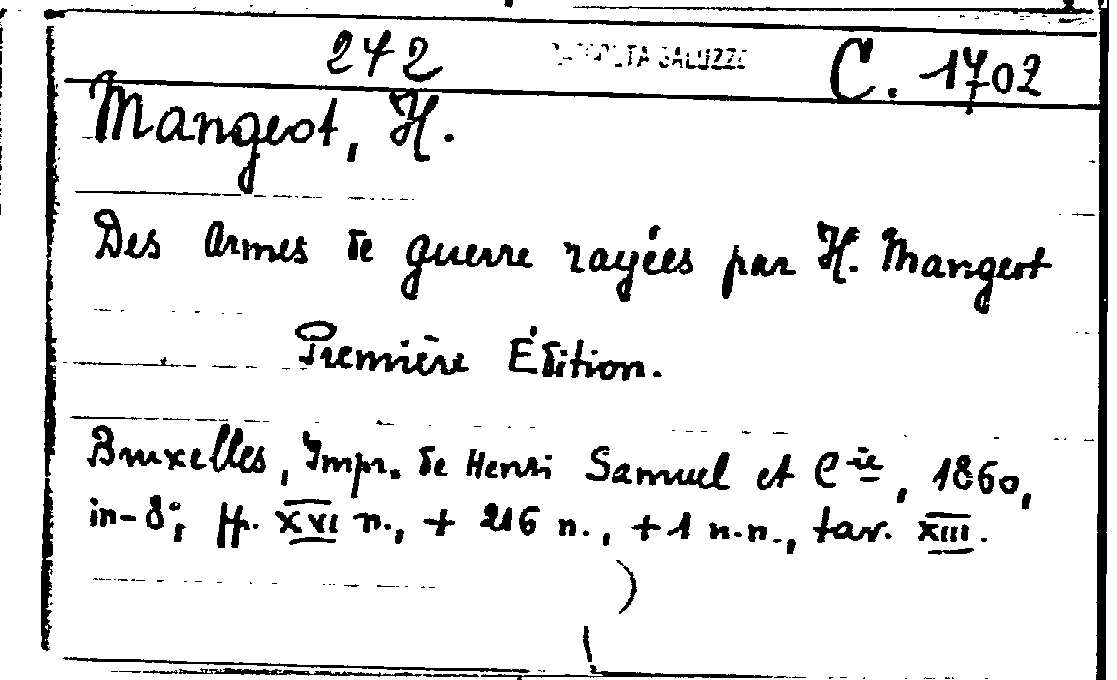 272 RACCOLTA SALUZZO C. 1702
Mangeot, H.
Des armes de guerre rayées par H. Mangeot
Première Édition.
Bruxelles, Impr. de Henri Samuel et Cie, 1860,
in-8°; pp. XVI n., + 216 n., + 1 n.n., tav. XIII.